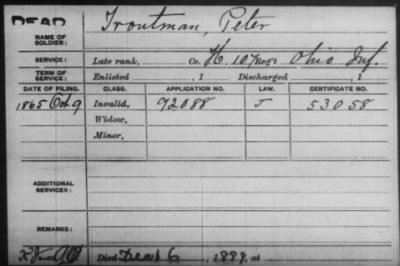 DEAD
Troutman, Peter
NAME OF SOLDIER:
SERVICE: Late rank, Co. H. 107 Reg't Ohio Inf.
TERM OF SERVICE: Enlisted , 1 Discharged , 1
DATE OF FILING. CLASS. APPLICATION NO. LAW. CERTIFICATE NO.
1865 Oct 9 Invalid, 72088 53058
Widow,
Minor,
ADDITIONAL SERVICES:
REMARKS:
Died 6, at